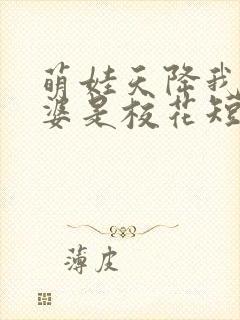 萌娃天降我
婆是校花短
薄皮